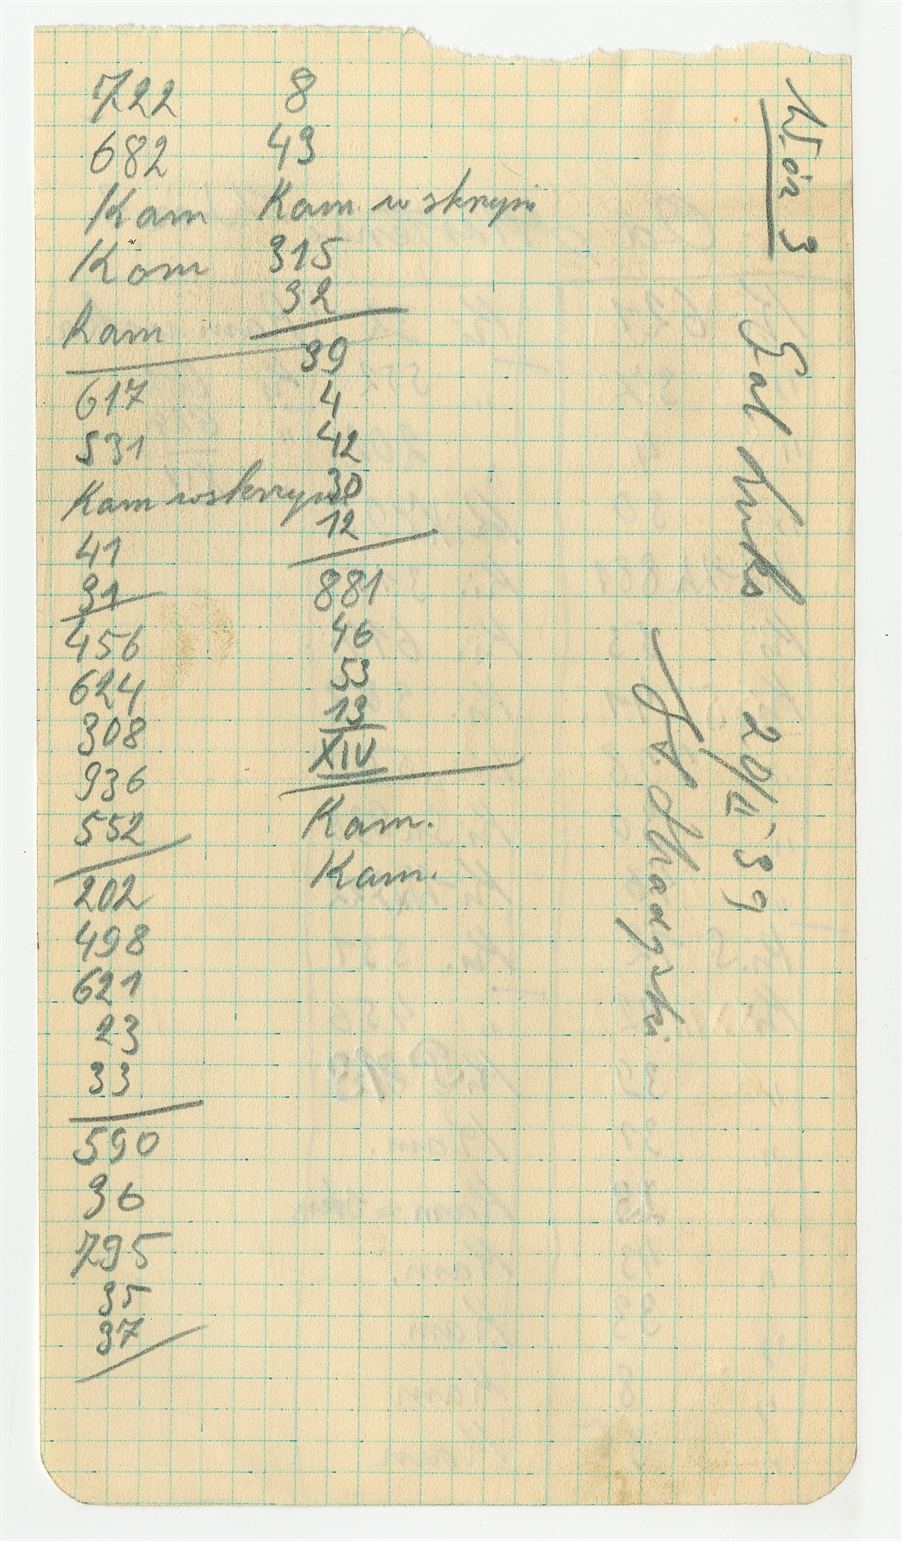 722
682
Kam
Kam
Kam
617
531
Kam w skrzyni
41
31
456
624
308
936
552
202
498
621
23
33
590
36
795
35
37
8
43
Kam w skrzyni
315
32
39
4
42
30
12
881
46
53
13
XIV
Kam.
Kam.
Wóz 3
20/II 39